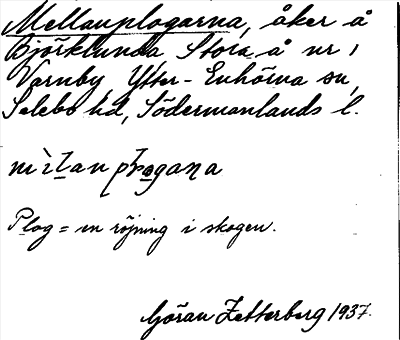 Mellanplogarna, åker å
Björklunda Stora å nr 1
Varnby, Ytter-Enhörna sn,
Selebo hd, Södermanlands l.
Plog = en röjning i skogen.
Göran Zetterberg 1937.